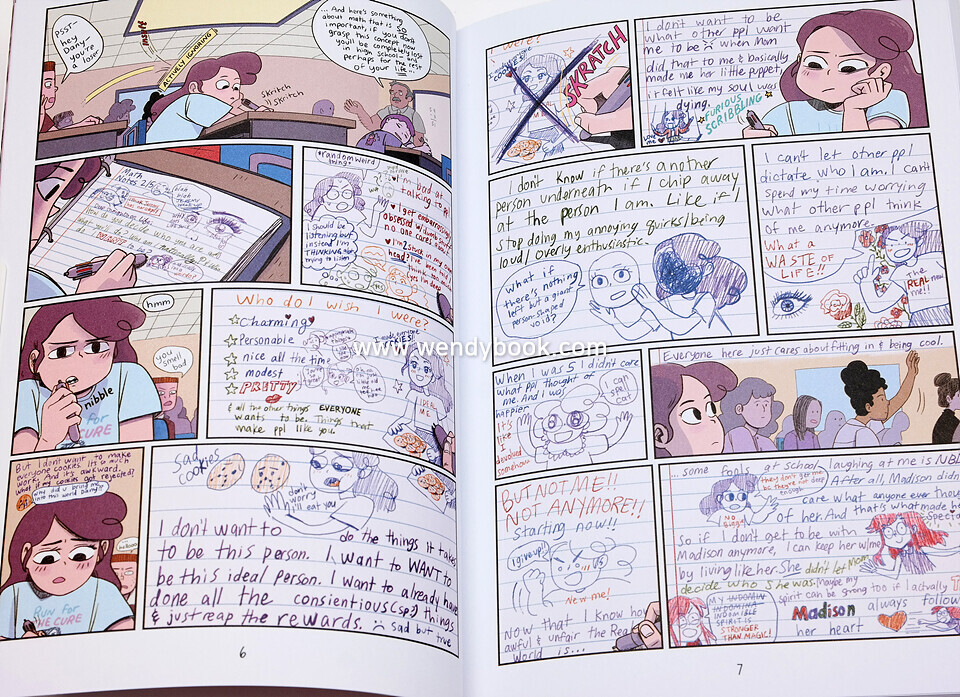 PSST-
hey
Dany-
you're
a loser
insult
ACTIVELY IGNORING
...And here's something
about math that is SO
important, if you don't
grasp this concept now
you'll be completely lost
in high school- and
perhaps for the rest
of your life...
skritch
skritch
Math
Notes 2/5/
random weird
thing
I'm bad at
talking to ppl
I get embarrassingly
obsessed w/dumb stuff
no one cares about
I should be
listening but
instead I'm
THINKING about
trying to listen
I'm stuck in my own
head?
hmm
nibble
you
smell
bad
FOR
CURE
Who do I wish I were?
Charming
Personable
nice all the time
modest
PRETTY
& all the other things EVERYONE
wants to be. Things that
make ppl like you.
IDEAL
ME
But I don't want to make
everyone cookies. It's so much
work. And it's awkward.
what if the cookies get rejected?
why did u bring me
into this world Dany?
RUN FOR
THE CURE
Sad
cookies
don't
worry
I'll eat you
I don't want to do the things it takes
to be this person. I want to WANT to
be this ideal person. I want to already have
done all the conscientious (sp?) things
& just reap the rewards. sad but true
6
I were?
SKRATCH
I don't want to be
what other ppl want
me to be when Mom
did that to me & basically
made me her little puppet,
it felt like my soul was
dying.
FURIOUS
SCRIBBLING
I don't know if there's another
person underneath if I chip away
at the person I am. Like if I
stop doing my annoying quirks/being
loud/overly enthusiastic.
What if
there's nothing
left but a giant
person-shaped
void?
I can't let other ppl
dictate who I am. I can't
spend my time worrying
what other ppl think
of me anymore.
What a
WASTE OF
LIFE!!
The
REAL
me!!
www.wendybook.com
When I was 5 I didn't care
what ppl thought of
me. And I was
happier
It's
like I
devolved
somehow
I can
spell
cat
Everyone here just cares about fitting in & being cool.
BUT NOT ME!!
NOT ANYMORE!!
Starting now!!
I give up!
New me!
Now that I know how
awful & unfair the Real
World is...
...some fools at school laughing at me is NB
they don't get me
bc they're not deep
enough
NO
BIGGY
After all, Madison didn't
care what anyone ever thought
of her. And that's what made her
special
So if I don't get to be with
Madison anymore, I can keep her w/me
by living like her. She didn't let Mom
decide who she was. Maybe my
spirit can be strong too if I actually
MY
INDOMIBLE
SPIRIT IS
STRONGER
THAN MAGIC!
Madison always follow
her heart
7